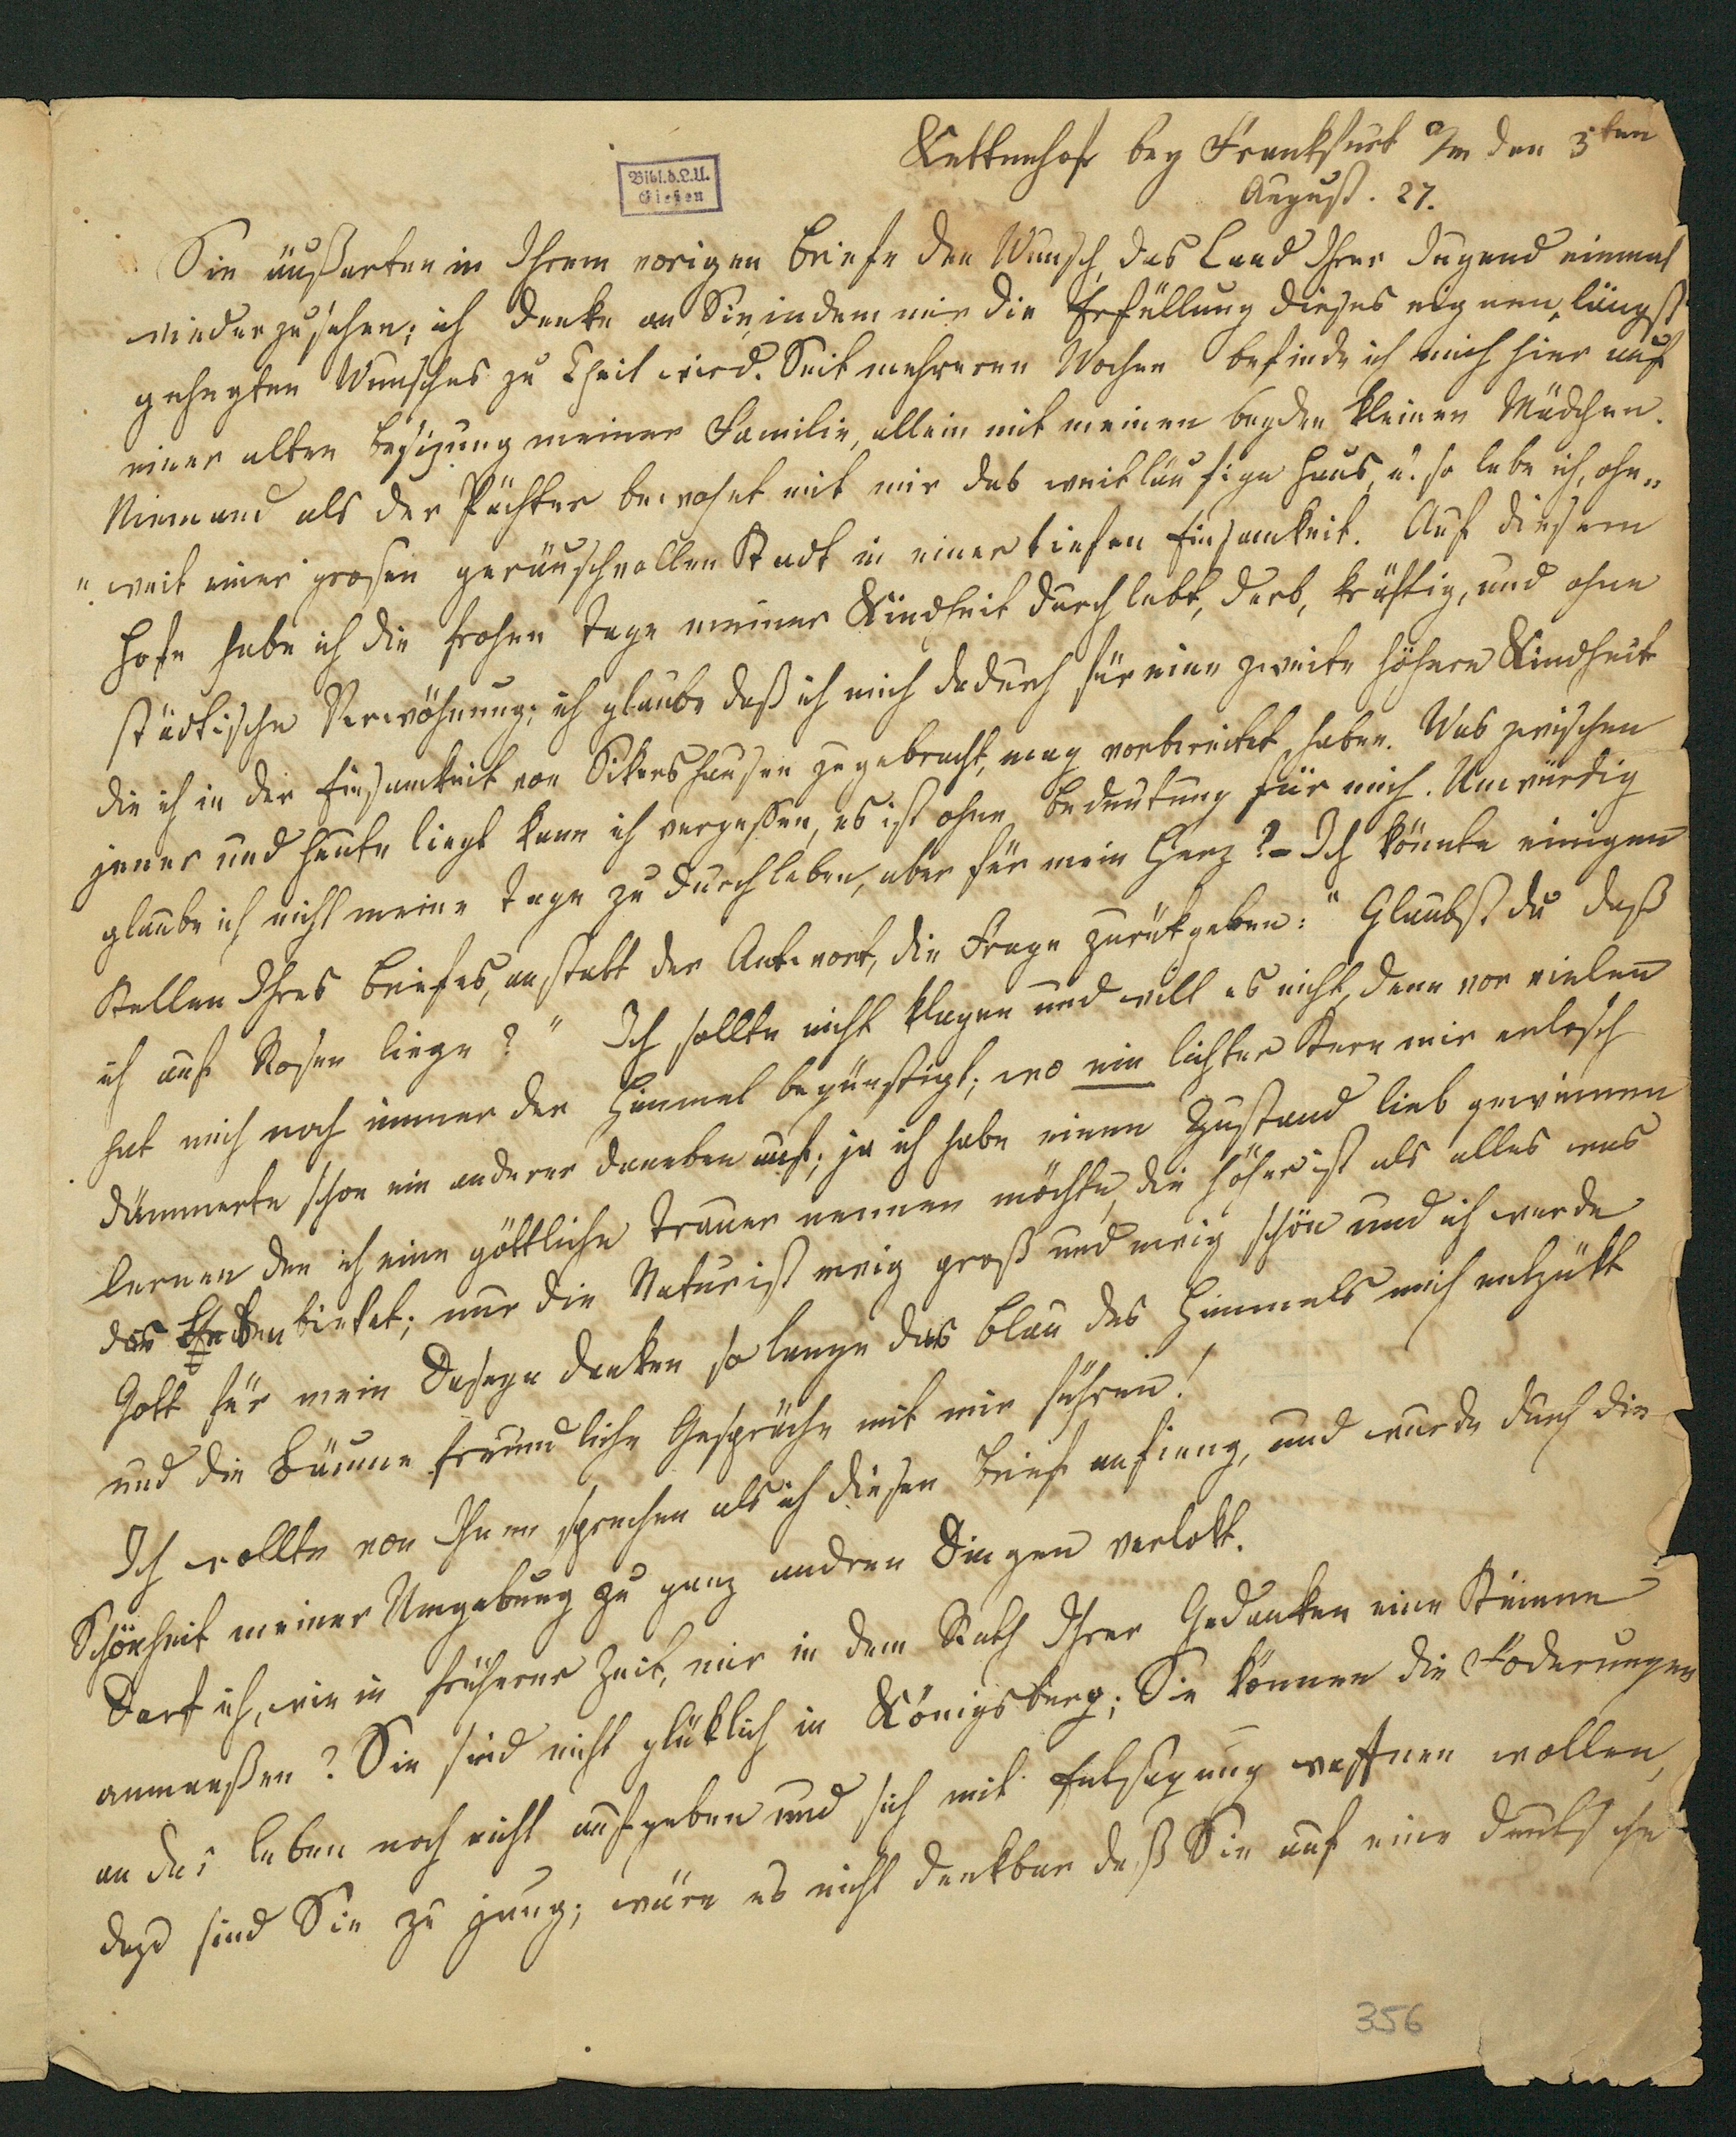 Kettenhof bey Frankfurt a/m den 3ten
August. 27.
Bibl. d. L. U.
Gießen
Sie äußerten in Ihrem vorigen Briefe den Wunsch, das Land Ihrer Jugend einmal
wiederzusehen; ich denke an Sie, indem mir die Erfüllung dieses eignen, längst
gehegten Wunsches zu Theil wird. Seit mehreren Wochen befinde ich mich hier auf
einer alten Besizung meiner Familie, allein mit meinen beyden kleinen Mädchen.
Niemand als der Pächter bewohnt mit mir das weitläufige Haus, u. so lebe ich, ohn„
„weit einer grosen geräuschvollen Stadt in einer tiefen Einsamkeit. Auf diesem
Hofe habe ich die frohen Tage meiner Kindheit durchlebt, derb, kräftig, und ohne
städtische Verwöhnung; ich glaube daß ich mich dadurch für eine zweite höhere Kindheit
die ich in der Einsamkeit von Sikershausen zugebracht, mag vorbereitet haben. Was zwischen
jener und heute liegt kann ich vergessen, es ist ohne Bedeutung für mich. Unwürdig
glaube ich nicht meine Tage zu durchleben, aber für mein Herz? – Ich könnte einigen
Stellen Ihres Briefes, anstatt der Antwort, die Frage zurükgeben: "Glaubst du daß
ich auf Rosen liege?" Ich sollte nicht klagen und will es nicht, denn vor vielen
hat mich noch immer der Himmel begünstigt; wo ein lichter Stern mir erlosch
dämmerte schon ein anderer daneben auf; ja ich habe einen Zustand lieb gewinnen
lernen den ich eine göttliche Trauer nennen möchte, die höher ist als alles was
das Leben bietet; nur die Natur ist ewig groß und ewig schön und ich werde
Gott für mein Daseyn danken so lange das Blau des Himmels mich entzükt
und die Bäume freundliche Gespräche mit mir führen!
Ich wollte von Ihnen sprechen als ich diesen Brief anfieng, und wurde durch die
Schönheit meiner Umgebung zu ganz andren Dingen verlokt.
Darf ich, wie in früherer Zeit, mir in dem Rath Ihrer Gedanken eine Stimme
anmaßen? Sie sind nicht glüklich in Königsberg; Sie können die Foderungen
an das Leben noch nicht aufgeben und sich mit Entsagung waffnen wollen,
dazu sind Sie zu jung; wäre es nicht denkbar daß Sie auf eine deutsche
356